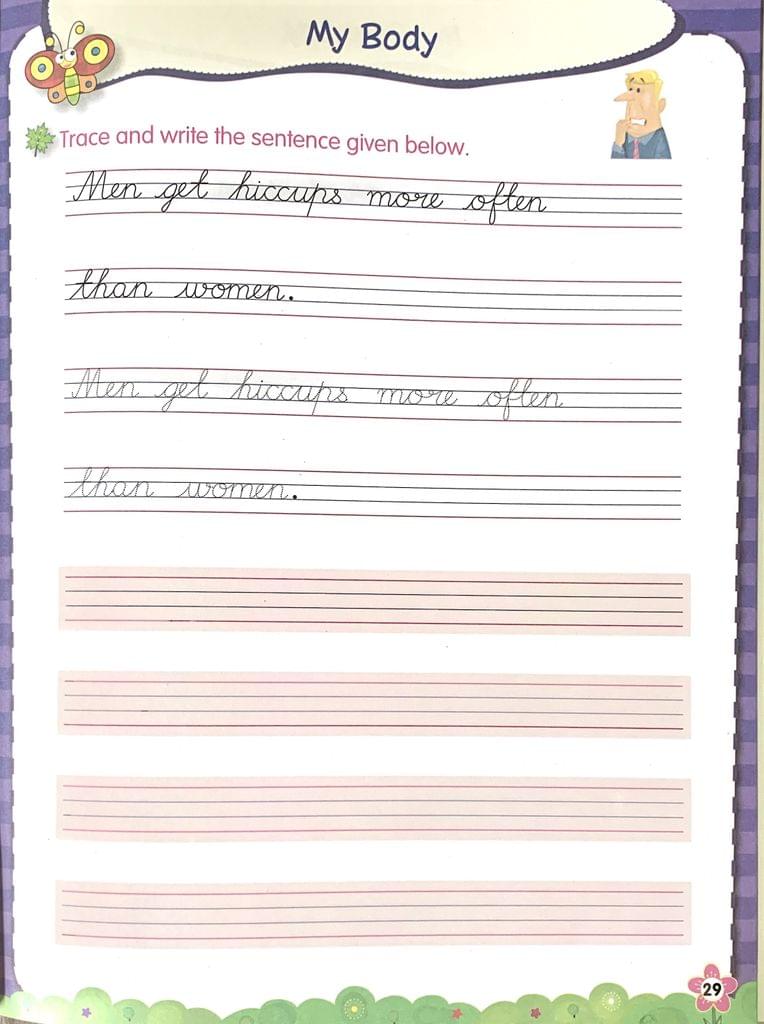 My Body
Trace and write the sentence given below.
Men get hiccups more often
than women.
Men get hiccups more often
than women.
29